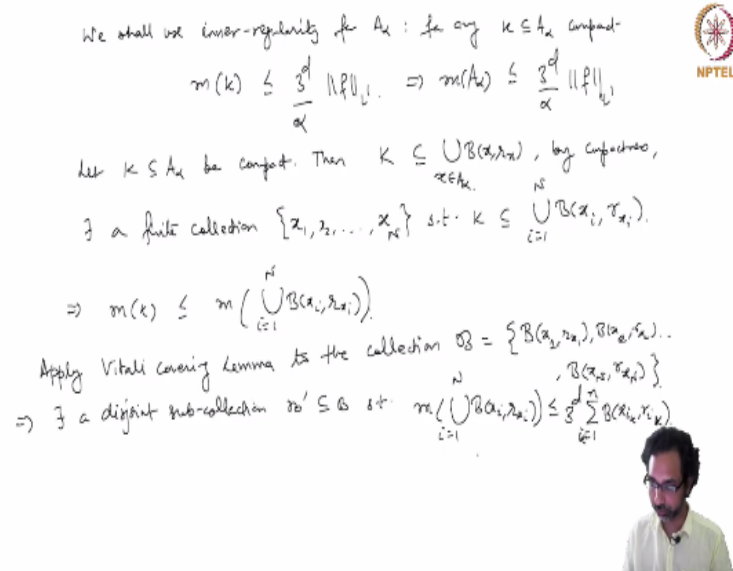 We shall use inner-regularity for A_α : for any K ⊆ A_α compact
m(K) ≤ 3^d/α ||f||_{L^1}. ⇒ m(A_α) ≤ 3^d/α ||f||_{L^1}
NPTEL
Let K ⊆ A_α be compact. Then K ⊆ ⋃_{x∈A_α} B(x,r_x), by compactness,
∃ a finite collection {x_1, x_2, ..., x_N} s.t. K ⊆ ⋃_{i=1}^N B(x_i, r_{x_i}).
⇒ m(K) ≤ m(⋃_{i=1}^N B(x_i, r_{x_i})).
Apply Vitali covering Lemma to the collection B = {B(x_1, r_{x_1}), B(x_2, r_{x_2})...
, B(x_N, r_{x_N})}.
⇒ ∃ a disjoint sub-collection B' ⊆ B s.t. m(⋃_{i=1}^N B(x_i, r_{x_i})) ≤ 3^d Σ_{k=1}^n B(x_{i_k}, r_{i_k})